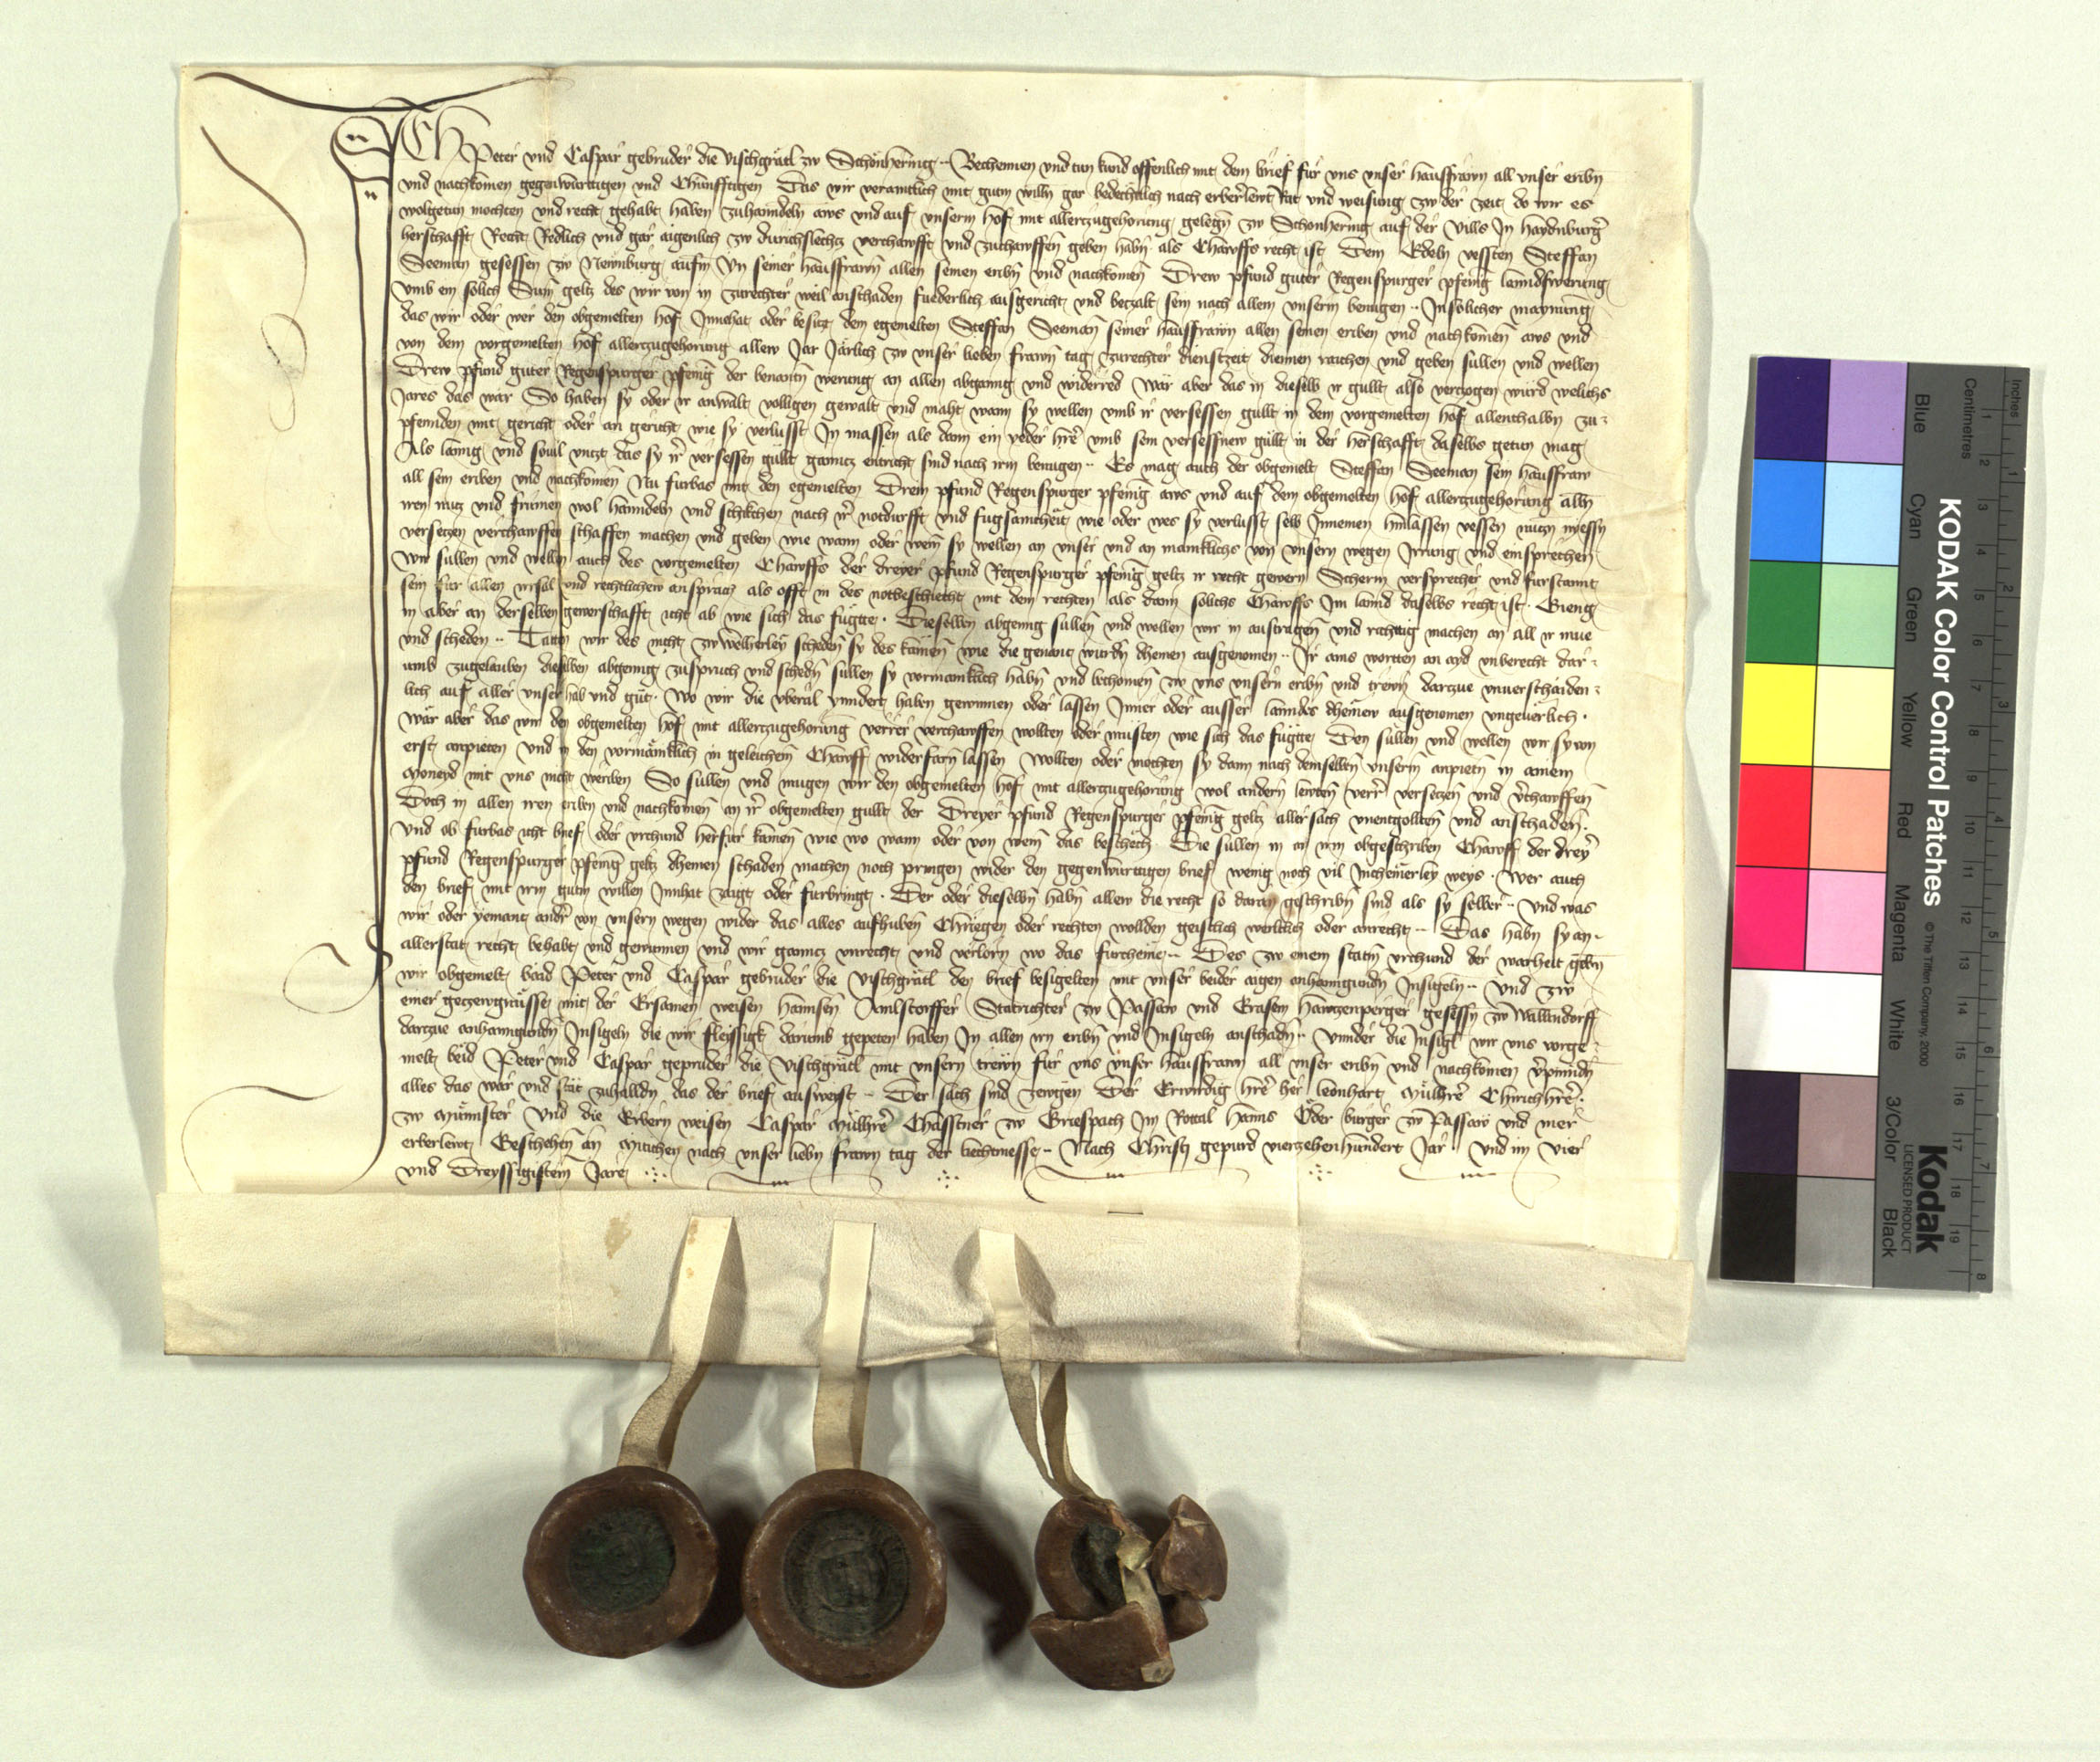 Ich Peter vnd Caspar gebruder die Vischgrätl zw Schönhering ·· Bechennen vnd tun kund offenlich mit dem brief für vns vnser hausfrawn all vnser eribn
vnd nachkomen gegenwürttigen vnd Chünfftigen Das wir veraintlich mit gutm willn gar bedechtlich nach erberlewt Rat vnd weisung zw der zeit do wir es
wolgetun mochten vnd recht gehabt haben zuhanndeln aws vnd auf vnserm hof mit allerzugehorung gelegn zw Schonhering auf der Vills In haydnburger
herschafft Recht Redlich vnd gar aigenlich zw durichslechtz verchawfft vnd zuchawffen geben habn als Chawffs recht ist Dem Edeln vessten Steffan
Seeman gesessen zw Newnburg aufm Yn seiner hausfrawn allen seinen eribn vnd nachkomen Drew pfund guter Regenspurger pfenig lanndswerung
vmb ein solich Sum geltz des wir von in zurechter weil anschaden fuederlich ausgericht vnd betzalt sein nach allem vnserm benugen ·· Insolicher maynung
das wir oder wer den obgemelten hof Innehat oder besitzt dem egemelten Steffan Seeman seiner hausfrawn allen seinen eriben vnd nachkomen aws vnd
von dem vorgemelten hof allerzugehorung allew Jar Järlich zw vnser lieben frawn tag zurechter dienstzeit diennen raichen vnd geben sullen vnd wellen
Drew pfund guter Regenspurger pfenig der benantn werung an allen abganng vnd widerred Wär aber das in dieselb ir gullt also vertzogen würd welichs
Jares das wär So haben sy oder ir anwalt volligen gewalt vnd maht wann sy wellen vmb ir versessen gullt in dem vorgemelten hof allenthalbn zu-
pfennden mit gericht oder an gericht wie sy verlusst In massen als dann ein yeder hre vmb sein versessnew gullt in der herschafft daselbs getun mag
Als lanng vnd souil vntzt das sy ir versessen gullt ganntz entricht sind nach irm benugen ·· Es mag auch der obgemelt Steffan Seeman sein hausfraw
all sein eriben vnd nachkomen Nu furbas mit den egemelten Drein pfund Regenspurger pfenig aws vnd auf dem obgemelten hof allerzugehorung allen
iren nutz vnd frumen wol hanndeln vnd schikchen nach ir notdurfft vnd fugsamcheit wie oder wes sy verlusst selb Innemen hinlassen vessen nutzn niessn
versetzen verchawffen schaffen machen vnd geben wie wann oder wem sy wellen an vnser vnd an mainklichs von vnsern wegen Irrung vnd einsprechen
Wir sullen vnd wellen auch des vorgemelten Chawffs der dreyer pfund Regenspurger pfenig geltz ir recht gewern Scherm versprecher vnd furstannt
sein fur allen irrsal vnd rechtlichen ansprach als offt in des notbeschiecht mit dem rechten als dann solichs Chawffs Im lannd daselbs recht ist · Gieng
in aber an derselben gewerschafft icht ab wie sich das fügtte · Dieselben abgenng sullen vnd wellen wir in austragen vnd richttig machen an all ir mue
vnd scheden ·· Tätn wir des nicht zw welherley scheden sy des kämen wie die genant wurdn dheinen ausgenomen ·· Ir ains wortten an ayd vnberecht dar-
umb zugelauben dieselben abgenng zuspruch vnd schedn sullen sy vormainklich habn vnd bechomen zw vns vnsern eribn vnd trewn dartzue vnuerschaiden-
lich auf aller vnser hab vnd gut · Wo wir die vberal ynndert haben gewinnen oder lassen Inner oder ausser lanndes dheinew ausgenomen vngeuerlich ·
Wär aber das wir den obgemelten hof mit allerzugehorung verrer verchawffen wollten oder müsten wie sich das fügtte Den sullen vnd wellen wir sy von
erst anpieten vnd in den vormainklich in geleichem Chawff widerfarn lassen Wollten oder mochten sy dann nach demselben vnserm anpietn in ainem
Moneyd mit vns nicht werben So sullen vnd mugen wir den obgemelten hof mit allerzugehorung wol andern lewten verr versetzen vnd verchawffen
Doch in allen iren eriben vnd nachkomen an ir obgemelten gullt der Dreyer pfund Regenspurger pfenig geltz aller sach vnentgollten vnd anschaden ·
Vnd ob furbas icht brief oder vrchund herfur kämen wie wo wann oder von wem das beschech Die sullen in an irm obgeschriben Chawff der dreyr
pfund Regenspurger pfenig geltz dheinen schaden machen noch pringen wider den gegenwürttigen brief wenig noch vil Incheinerley weys · Wer auch
den brief mit irm gutm willen Innhat zaigt oder furbringt · Der oder dieselbn habn allew die recht so daran geschribn sind als sy selber ·· Vnd was
wir oder yemant andr von vnsern wegen wider das alles aufhubn Chriegen oder rechten wollden geistlich werltlich oder anrecht ·· Das habn sy an-
allerstat recht behabt vnd gewunnen vnd wir ganntz vnrecht vnd verlorn wo das fürchäme ·· Des zw einem statn vrchund der warheit gebn
wir obgemelt baid Peter vnd Caspar gebruder die Vischgrätl den brief besigelten mit vnser beider aigen anhanngunden Insigeln ·· Vnd zw
einer getzewgnüsse mit der Ersamen weisen Hannsen Amlstorffer Statrichter zw Passaw vnd Erasem Hawtzenperger gesessn zw Wallendorff
dartzue anhanngunden Insigeln die wir fleyssigk darumb gepeten haben In allen irn eribn vnd Insigeln anschadn ·· Vnnder die Insigl wir vns vorge-
melt beid Peter vnd Caspar gepruder die Vischgrätl mit vnsern trewn fur vns vnser hausfrawn all vnser eribn vnd nachkomen verpinndn
alles das war vnd stät zuhalldn das der brief ausweist ·· Der sach sind zewgen Der Erwirdig hre her leonhart Mülhre Chirichhre ·
zw Münnster Vnd die Erbern weisen Caspar Mülhre Chasstner zw Griespach Im Rottal Hanns Öder burger zw Passaw vnd mer
erberlewt Geschehen an Mitichen nach vnser liebn frawn tag der liechtmesse ·· Nach Christj gepurd viertzehenhundert Jar · vnd im Vier
vnd Dreyssigistem Jare
KODAK Color Control Patches © The Tiffen Company, 2000
Kodak
LICENSED PRODUCT
Inches 1 2 3 4 5 6 7 8
Centimetres 1 2 3 4 5 6 7 8 9 10 11 12 13 14 15 16 17 18 19
Blue Cyan Green Yellow Red Magenta White 3/Color Black